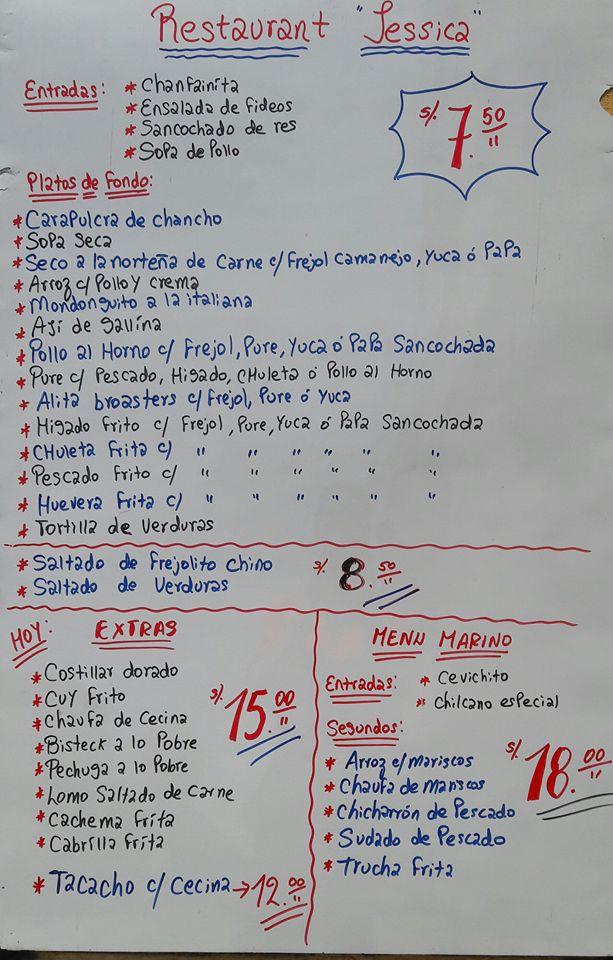 Restaurant "Jessica"
Entradas: * Chanfainita
* Ensalada de fideos
* Sancochado de res
* Sopa de Pollo
S/. 7.50
Platos de fondo:
* Carapulcra de chancho
* Sopa Seca
* Seco a la norteña de Carne c/ Frejol camanejo, Yuca ó PaPa
* Arroz c/ Pollo y crema
* Mondonguito a la italiana
* Ají de gallina
* Pollo al Horno c/ Frejol, Pure, Yuca ó PaPa Sancochada
* Pure c/ Pescado, Higado, CHuleta ó Pollo al Horno
* Alita broasters c/ Frejol, Pure ó Yuca
* Higado Frito c/ Frejol, Pure, Yuca ó PaPa Sancochada
* CHuleta Frita c/ " " " " " "
* Pescado Frito c/ " " " " " "
* Huevera Frita c/ " " " " " "
* Tortilla de Verduras
* Saltado de Frejolito chino S/. 8.50
* Saltado de Verduras
HOY: EXTRAS
* Costillar dorado
* Cuy Frito
* Chaufa de Cecina
* Bisteck a lo Pobre
* Pechuga a lo Pobre
* Lomo Saltado de Carne
* Cachema Frita
* Cabrilla Frita
S/. 15.00
* Tacacho c/ Cecina → 12.00
MENU MARINO
Entradas: * Cevichito
* Chilcano especial
Segundos:
* Arroz c/ mariscos
* Chaufa de mariscos
* Chicharrón de Pescado
* Sudado de Pescado
* Trucha Frita
S/. 18.00